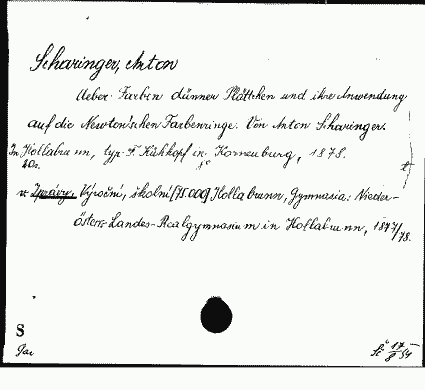 Scharinger, Anton
Ueber Farben dünner Plättchen und ihre Anwendung
auf die Newton'schen Farbenringe. Von Anton Scharinger.
In Hollabrunn, typ. F. Kühkopf in Korneuburg, 1878.
v: Zprávy, Výroční, školní [75.000] Hollabrunn, Gymnasia: Nieder-
österr. Landes-Realgymnasium in Hollabrunn, 1877/78.
S